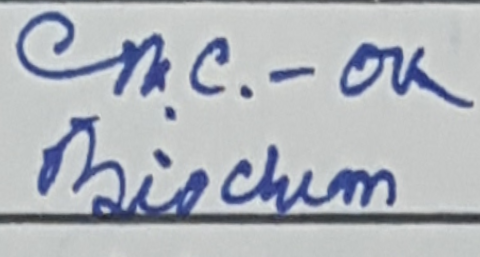 C.M.C. - OK
Biochem